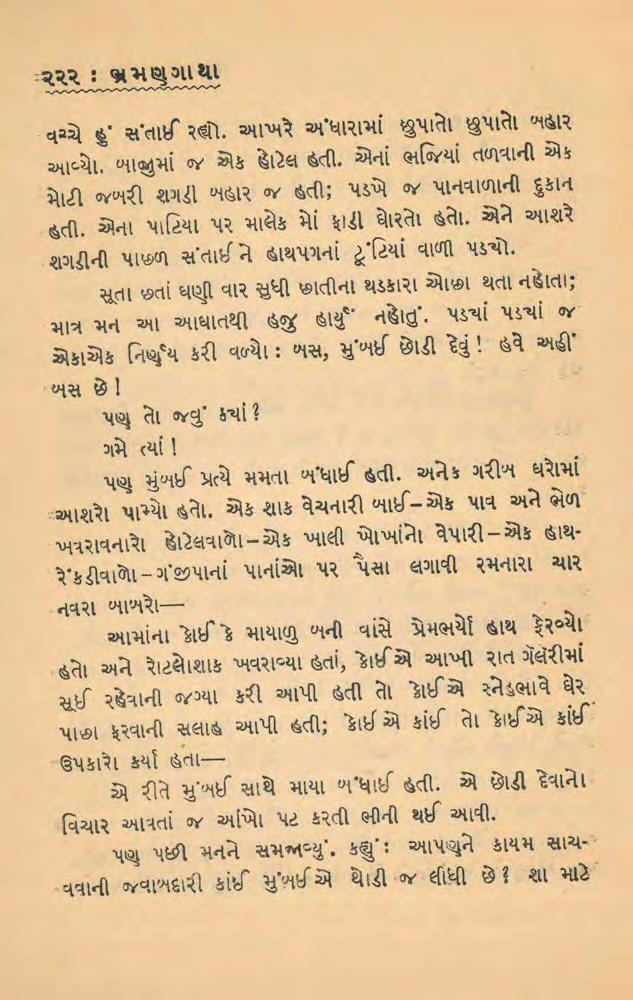 ૨૨૨ : ભ્રમણગાથા
વચ્ચે હું સંતાઈ રહ્યો. આખરે અંધારામાં છુપાતો છુપાતો બહાર
આવ્યો. બાજુમાં જ એક હોટેલ હતી. એનાં ભજિયાં તળવાની એક
મોટી જબરી શગડી બહાર જ હતી; પડખે જ પાનવાળાની દુકાન
હતી. એના પાટિયા પર માલેક મોં ફાડી ઘોરતો હતો. એને આશરે
શગડીની પાછળ સંતાઈ ને હાથપગનાં ટૂંટિયાં વાળી પડ્યો.
સૂતા છતાં ઘણી વાર સુધી છાતીના થડકારા ઓછા થતા નહોતા;
માત્ર મન આ આઘાતથી હજુ હાર્યું નહોતું. પડ્યાં પડ્યાં જ
એકાએક નિર્ણય કરી વળ્યો : બસ, મુંબઈ છોડી દેવું ! હવે અહીં
બસ છે !
પણ તો જવું ક્યાં ?
ગમે ત્યાં !
પણ મુંબઈ પ્રત્યે મમતા બંધાઈ હતી. અનેક ગરીબ ઘરોમાં
આશરો પામ્યો હતો. એક શાક વેચનારી બાઈ – એક પાવ અને ભેળ
ખવરાવનારો હોટેલવાળો – એક ખાલી ખોખાંનો વેપારી – એક હાથ-
રેંકડીવાળો – ગંજીપાનાં પાનાંઓ પર પૈસા લગાવી રમનારા ચાર
નવરા બાબરો—
આમાંના કોઈ કે માયાળુ બની વાંસે પ્રેમભર્યો હાથ ફેરવ્યો
હતો અને રોટલોશાક ખવરાવ્યા હતાં, કોઈ એ આખી રાત ગૅલૅરીમાં
સૂઈ રહેવાની જગ્યા કરી આપી હતી તો કોઈ એ સ્નેહભાવે ઘેર
પાછા ફરવાની સલાહ આપી હતી; કોઈ એ કાંઈ તો કોઈ એ કાંઈ
ઉપકારો કર્યા હતા—
એ રીતે મુંબઈ સાથે માયા બંધાઈ હતી. એ છોડી દેવાનો
વિચાર આવતાં જ આંખો પટ કરતી ભીની થઈ આવી.
પણ પછી મનને સમજાવ્યું. કહ્યું : આપણને કાયમ સાચ-
વવાની જવાબદારી કાંઈ મુંબઈ એ થોડી જ લીધી છે ? શા માટે